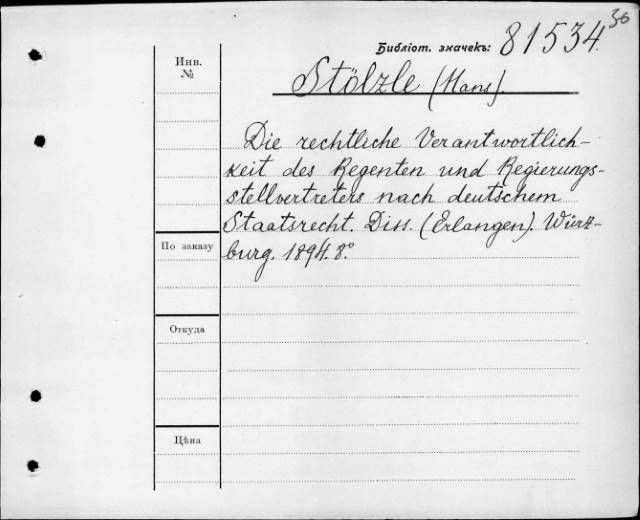 36
Библіот. значекъ: 81534.
Инв.
№
Stölzle (Hans).
Die rechtliche Verantwortlich-
keit des Regenten und Regierungs-
stellvertreters nach deutschem
Staatsrecht. Diss. (Erlangen). Würz-
По заказу
burg. 1894. 8.°
Откуда
Цѣна